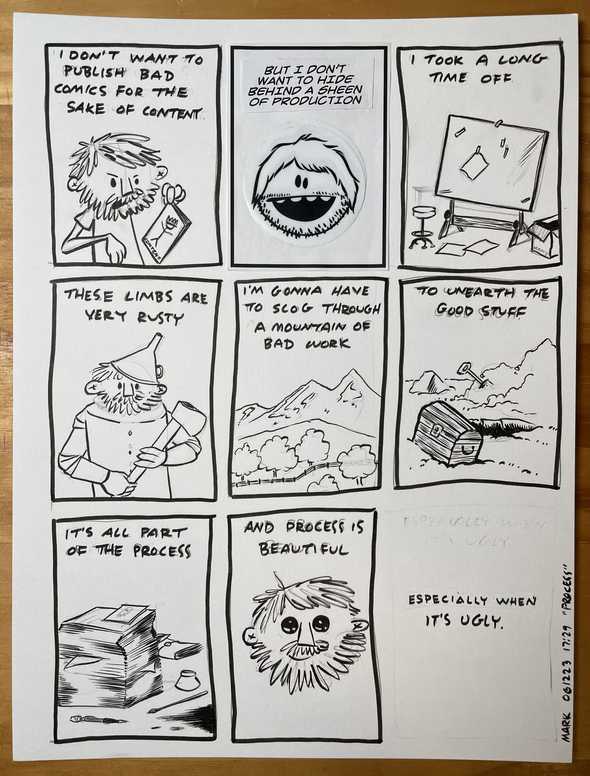 I DON'T WANT TO
PUBLISH BAD
COMICS FOR THE
SAKE OF CONTENT.
BUT I DON'T
WANT TO HIDE
BEHIND A SHEEN
OF PRODUCTION
I TOOK A LONG
TIME OFF
THESE LIMBS ARE
VERY RUSTY
I'M GONNA HAVE
TO SLOG THROUGH
A MOUNTAIN OF
BAD WORK
TO UNEARTH THE
GOOD STUFF
IT'S ALL PART
OF THE PROCESS
AND PROCESS IS
BEAUTIFUL
ESPECIALLY WHEN
IT'S UGLY
ESPECIALLY WHEN
IT'S UGLY.
MARK 061223 17:29 "PROCESS"